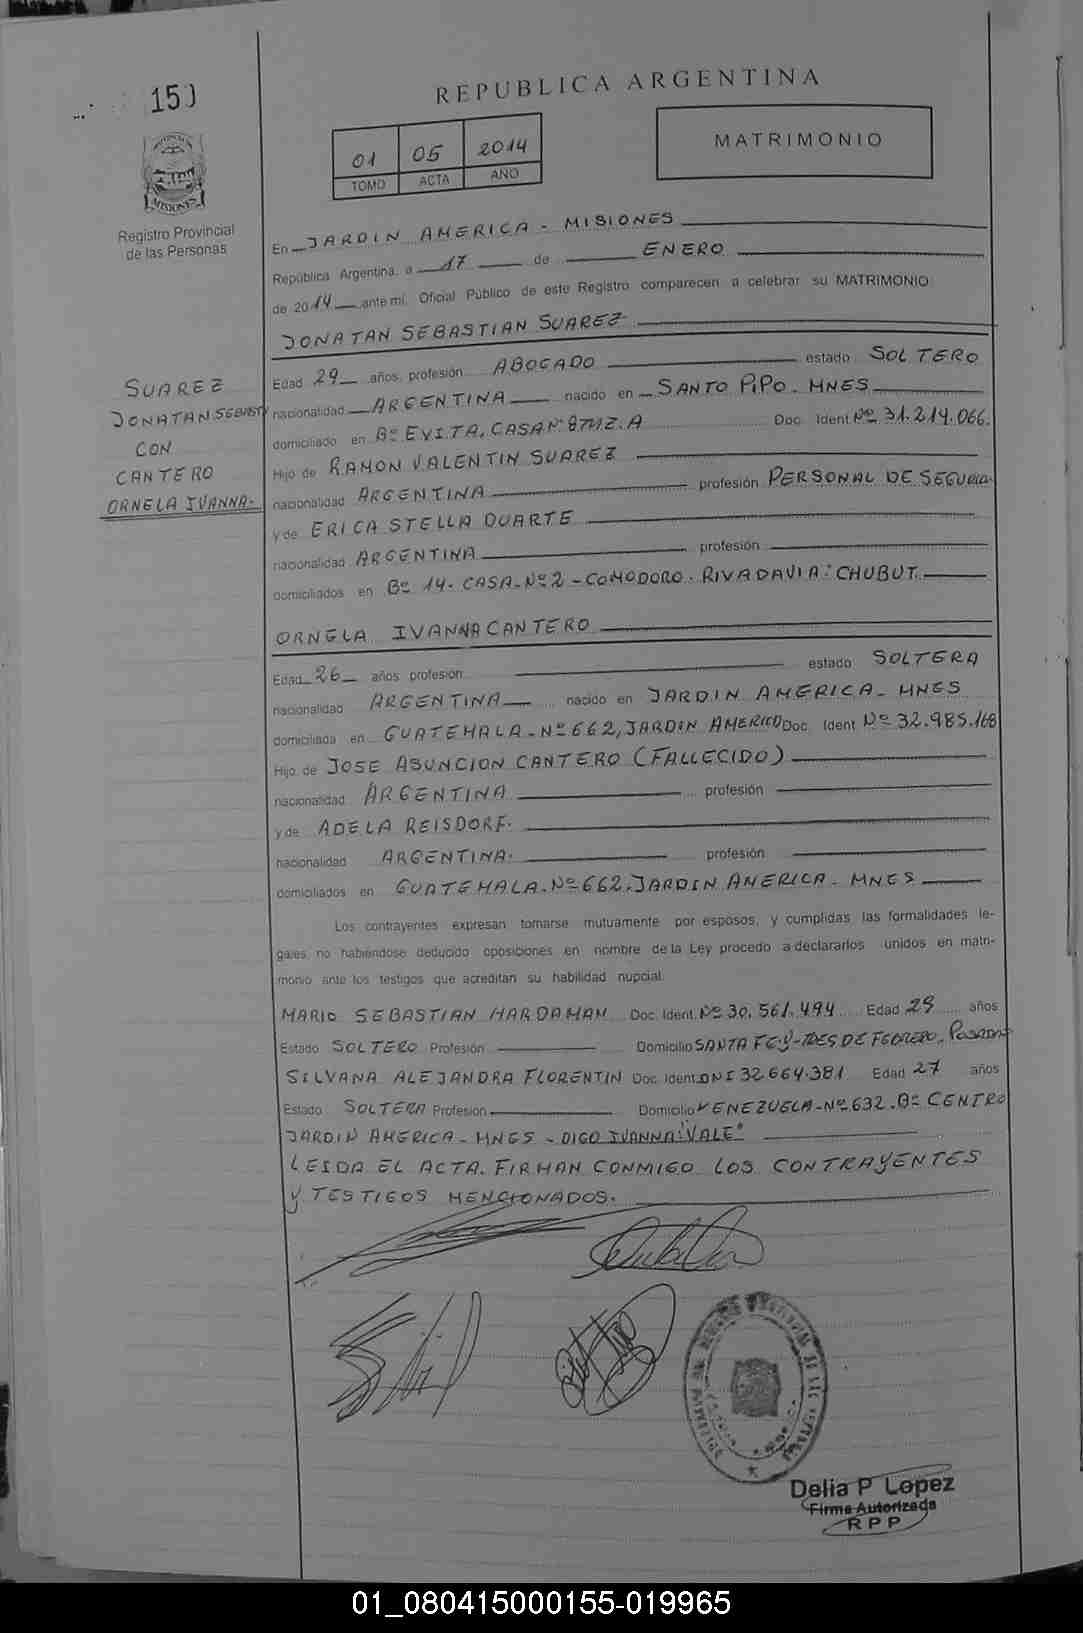 REPUBLICA ARGENTINA
150
01 05 2014
TOMO ACTA AÑO
MATRIMONIO
PROVINCIA
MISIONES
Registro Provincial
de las Personas
En JARDIN AMERICA - MISIONES
República Argentina, a 17 de ENERO
de 2014 ante mí, Oficial Público de este Registro comparecen a celebrar su MATRIMONIO
JONATAN SEBASTIAN SUAREZ
Edad 29 años, profesión ABOGADO estado SOLTERO
nacionalidad ARGENTINA nacido en SANTO PIPO - MNES
domiciliado en Bº EVITA, CASA Nº 8 MZ. A Doc. Ident Nº 31.214.066.
Hijo de RAMON VALENTIN SUAREZ
nacionalidad ARGENTINA profesión PERSONAL DE SEGURID.
y de ERICA STELLA DUARTE
nacionalidad ARGENTINA profesión
domiciliados en Bº 14. CASA Nº 2 - COMODORO. RIVADAVIA: CHUBUT.
SUAREZ
JONATAN SEBASTI
CON
CANTERO
ORNELA IVANNA.
ORNELA IVANNA CANTERO
Edad 26 años profesión estado SOLTERA
nacionalidad ARGENTINA nacido en JARDIN AMERICA - MNES
domiciliada en GUATEMALA - Nº 662, JARDIN AMERICA Doc. Ident Nº 32.985.168
Hijo de JOSE ASUNCION CANTERO (FALLECIDO)
nacionalidad ARGENTINA profesión
y de ADELA REISDORF.
nacionalidad ARGENTINA. profesión
domiciliados en GUATEMALA. Nº 662. JARDIN AMERICA - MNES
Los contrayentes expresan tomarse mutuamente por esposos, y cumplidas las formalidades le-
gales, no habiéndose deducido oposiciones en nombre de la Ley procedo a declararlos unidos en matri-
monio ante los testigos que acreditan su habilidad nupcial.
MARIO SEBASTIAN HARDAMAN Doc. Ident. Nº 30.561.494 Edad 29 años
Estado SOLTERO Profesión Domicilio SANTA FE Y TRES DE FEBRERO. POSADAS
SILVANA ALEJANDRA FLORENTIN Doc. Ident. DNI 32.664.381 Edad 27 años
Estado SOLTERA Profesión Domicilio VENEZUELA - Nº 632. Bº CENTRO
JARDIN AMERICA - MNES - DIGO IVANNA "VALE"
LEIDA EL ACTA. FIRMAN CONMIGO LOS CONTRAYENTES
Y TESTIGOS MENCIONADOS.
Delia P Lopez
Firma Autorizada
RPP
01_080415000155-019965